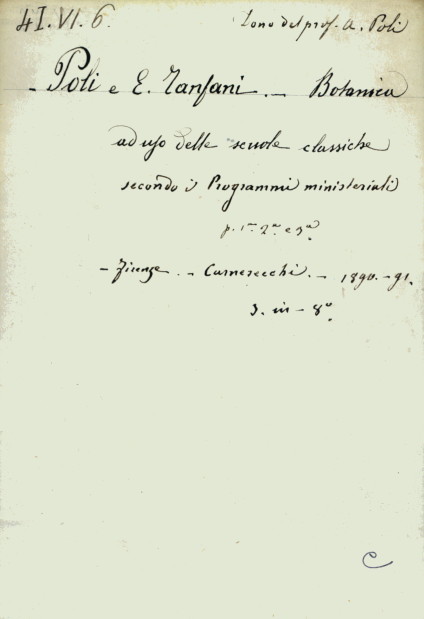 41.VI.6.
Dono del prof. A. Poli
- Poli e E. Tanfani. - Botanica
ad uso delle scuole classiche
secondo i Programmi ministeriali
p. 1ª 2ª e 3ª
- Firenze. - Carnesecchi. - 1890. - 91.
3. in - 8º.
C